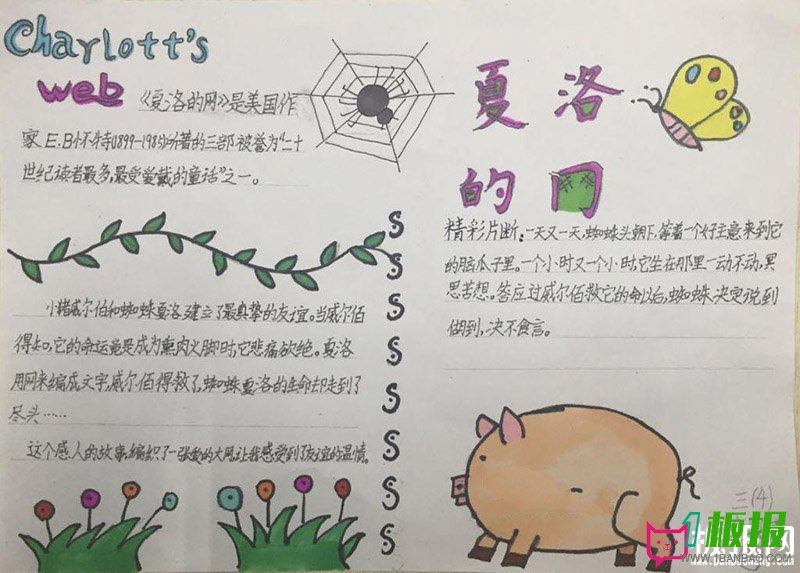 Charlott's
web
《夏洛的网》是美国作
家E.B怀特(1899-1985)所著的三部被誉为"二十
世纪读者最多,最受爱戴的童话"之一。
小猪威尔伯和蜘蛛夏洛建立了最真挚的友谊。当威尔伯
得知,它的命运竟是成为熏肉火脚时,它悲痛欲绝。夏洛
用网来编成文字,威尔佰得救了,蜘蛛夏洛的生命却走到了
尽头……
这个感人的故事,编织了一张爱的大网,让我感受到了友谊的温情。
S
S
S
S
S
S
S
S
S
夏洛
的网
精彩片断:一天又一天,蜘蛛头朝下,等着一个好主意来到它
的脑瓜子里。一个小时又一个小时,它坐在那里一动不动,冥
思苦想。答应过威尔佰救它的命以后,蜘蛛决定说到
做到,决不食言。
三(4)
1板报
WWW.1BANBAO.COM